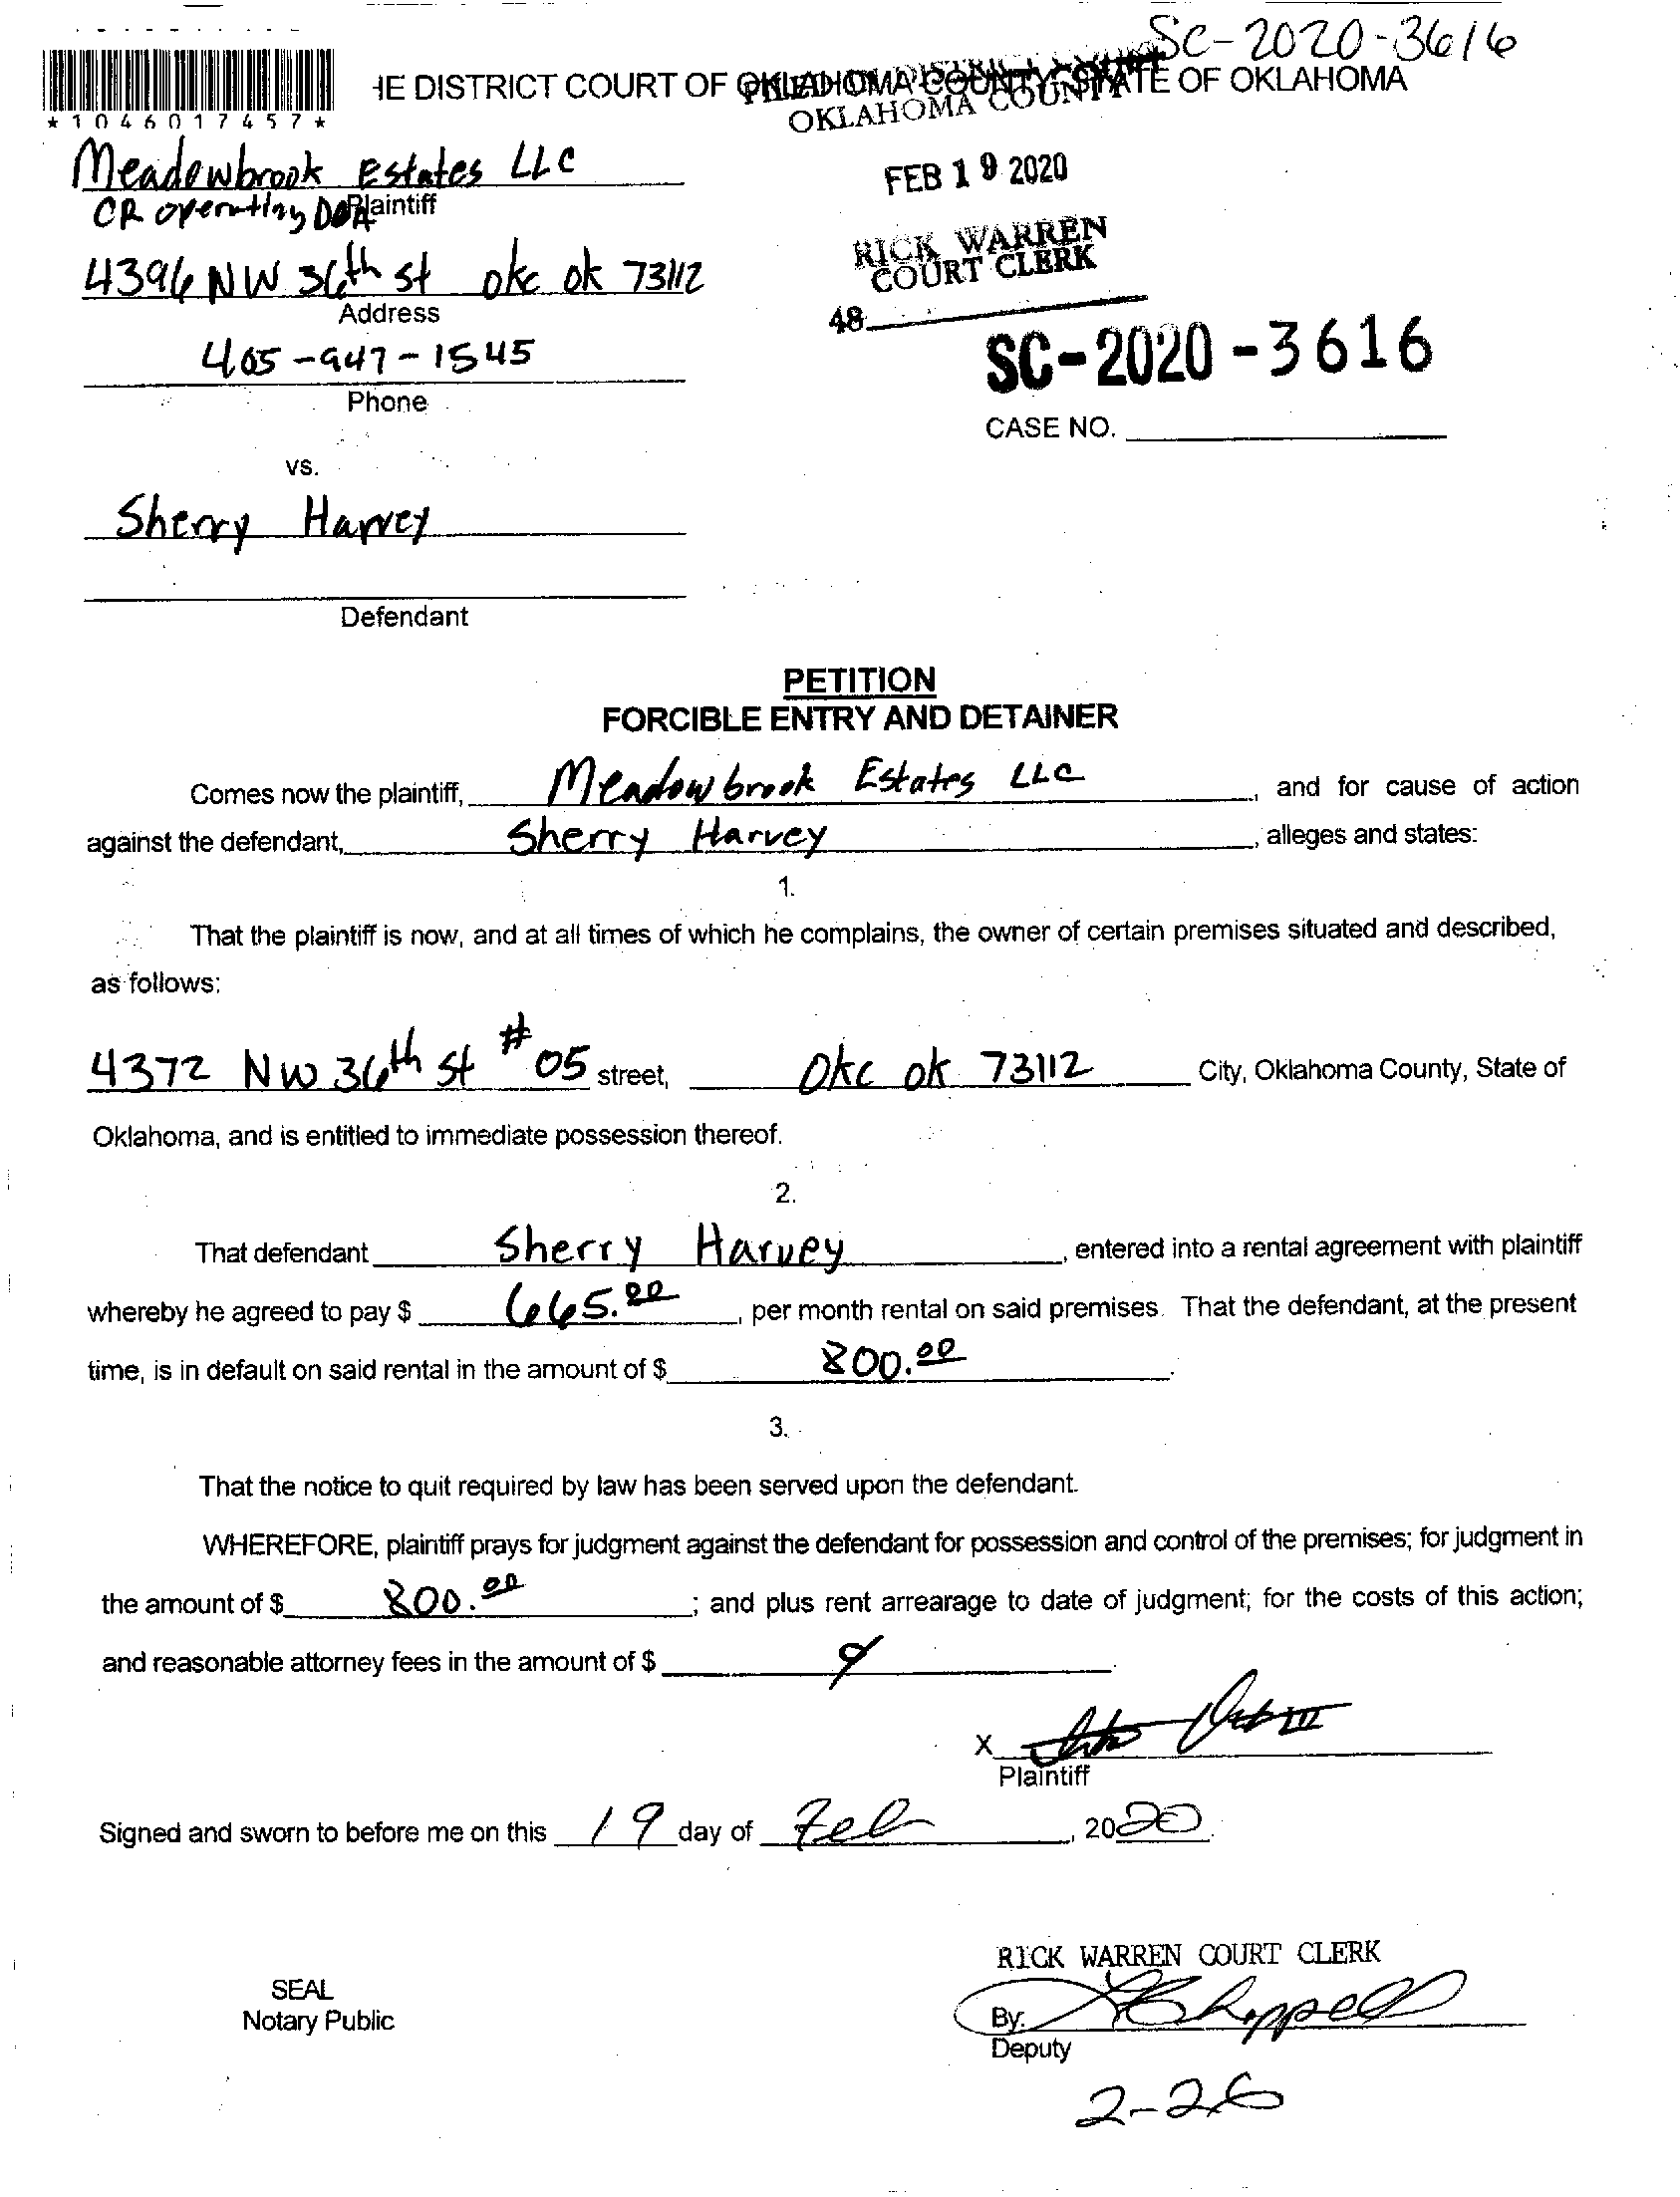 SC-2020-3616
HE DISTRICT COURT OF OKLAHOMA COUNTY, STATE OF OKLAHOMA
OKLAHOMA COUNTY
*1046017457*
Meadowbrook Estates LLC
CR operating DBA Plaintiff
FEB 19 2020
RICK WARREN
COURT CLERK
4396 NW 36th St okc ok 73112
Address
48
405-947-1545
Phone
SC-2020-3616
CASE NO.
vs.
Sherry Harvey
Defendant
PETITION
FORCIBLE ENTRY AND DETAINER
Comes now the plaintiff, Meadowbrook Estates LLC, and for cause of action
against the defendant, Sherry Harvey, alleges and states:
1.
That the plaintiff is now, and at all times of which he complains, the owner of certain premises situated and described,
as follows:
4372 NW 36th St #05 street, Okc ok 73112 City, Oklahoma County, State of
Oklahoma, and is entitled to immediate possession thereof.
2.
That defendant Sherry Harvey, entered into a rental agreement with plaintiff
whereby he agreed to pay $ 665.00, per month rental on said premises. That the defendant, at the present
time, is in default on said rental in the amount of $ 800.00.
3.
That the notice to quit required by law has been served upon the defendant.
WHEREFORE, plaintiff prays for judgment against the defendant for possession and control of the premises; for judgment in
the amount of $ 800.00; and plus rent arrearage to date of judgment; for the costs of this action;
and reasonable attorney fees in the amount of $
X
Plaintiff
Signed and sworn to before me on this 19 day of Feb, 2020.
RICK WARREN COURT CLERK
SEAL
Notary Public
By: Chappell
Deputy
2-26